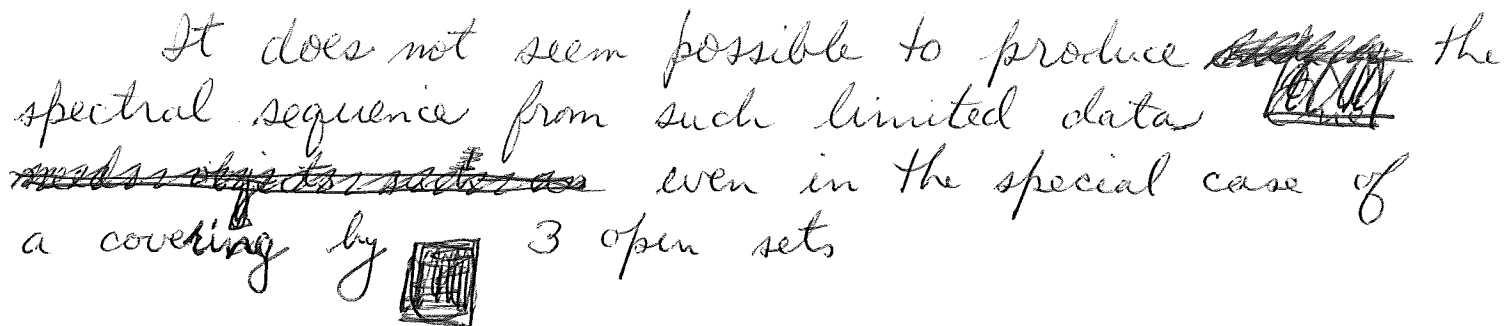 It does not seem possible to produce the
spectral sequence from such limited data
even in the special case of
a covering by 3 open sets